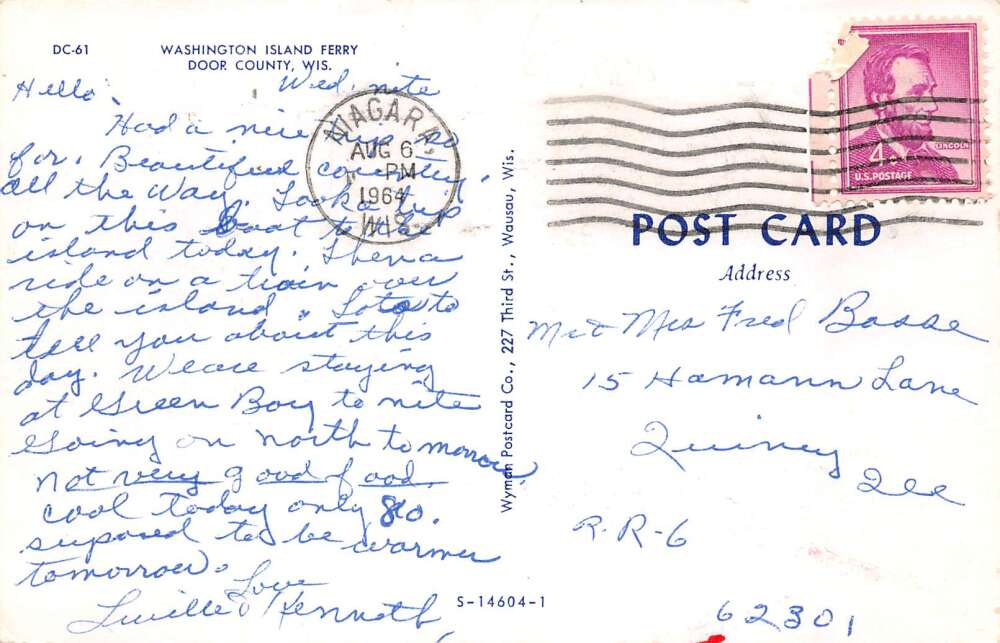 DC-61
WASHINGTON ISLAND FERRY
DOOR COUNTY, WIS.
Hello, Wed. nite
Had a nice trip so
for. Beautiful country
all the way. Took a trip
on this boat to the
island today. Then a
ride on a train over
the island. Lots to
tell you about this
day. We are staying
at Green Bay to nite
Going on north tomorrow.
not very good food.
cool today only 80.
suposed to be warmer
tomorrow.
Love
Lucille & Kenneth
NIAGARA
AUG 6
PM
1964
WIS.
Wyman Postcard Co., 227 Third St., Wausau, Wis.
S-14604-1
4¢
LINCOLN
U.S. POSTAGE
POST CARD
Address
Mr & Mrs Fred Basse
15 Hamann Lane
Quincy
Ill
R.R-6
62301